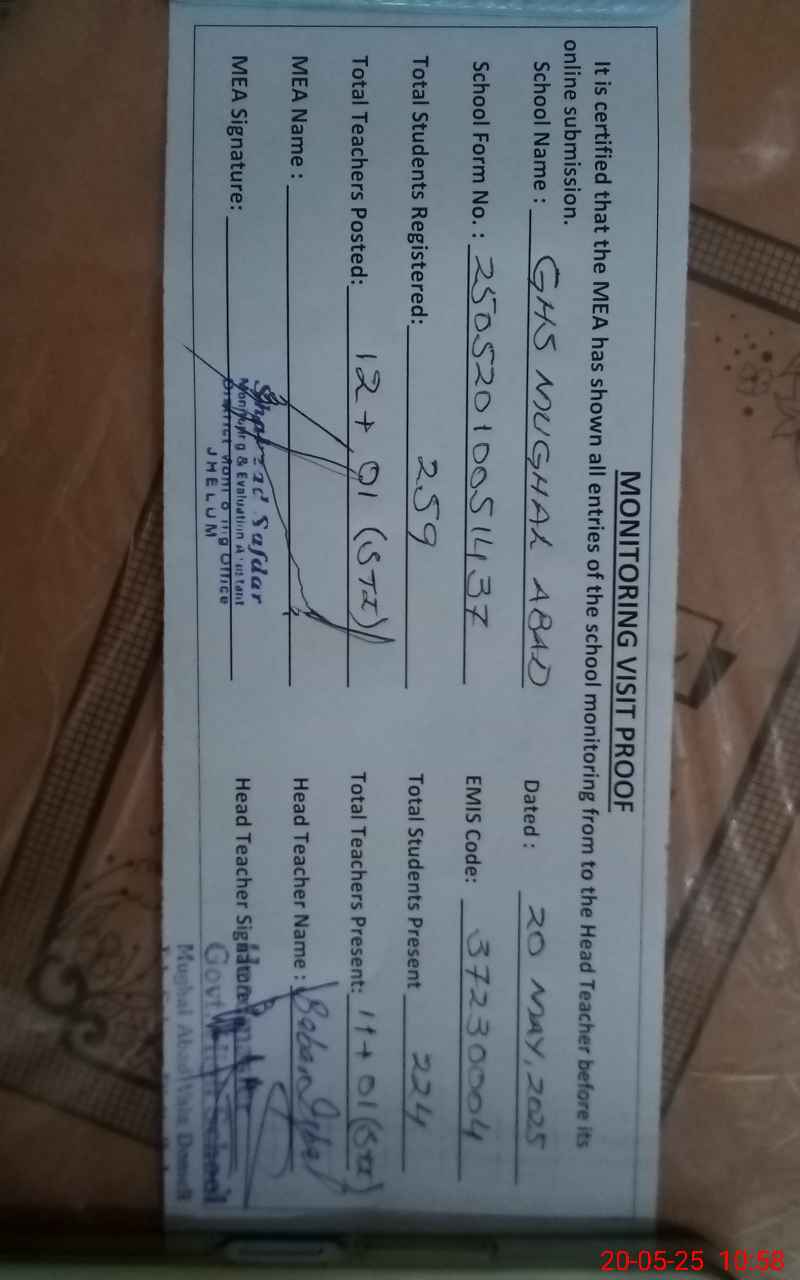 MONITORING VISIT PROOF
It is certified that the MEA has shown all entries of the school monitoring from to the Head Teacher before its
online submission.
School Name : GHS MUGHAL ABAD Dated : 20 MAY, 2025
School Form No. : 2505201051437 EMIS Code: 37230004
Total Students Registered: 259 Total Students Present 224
Total Teachers Posted: 12 + 01 (STI) Total Teachers Present: 11 + 01 (STI)
MEA Name : Head Teacher Name :
MEA Signature: Head Teacher Signature
Safdar
Monitoring & Evaluation Assistant
District Monitoring Office
JHELUM
Govt School
Mughal Abad
20-05-25 10:58